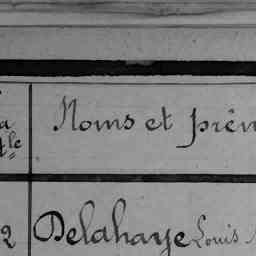 Noms et prén
2 Delahaye Louis